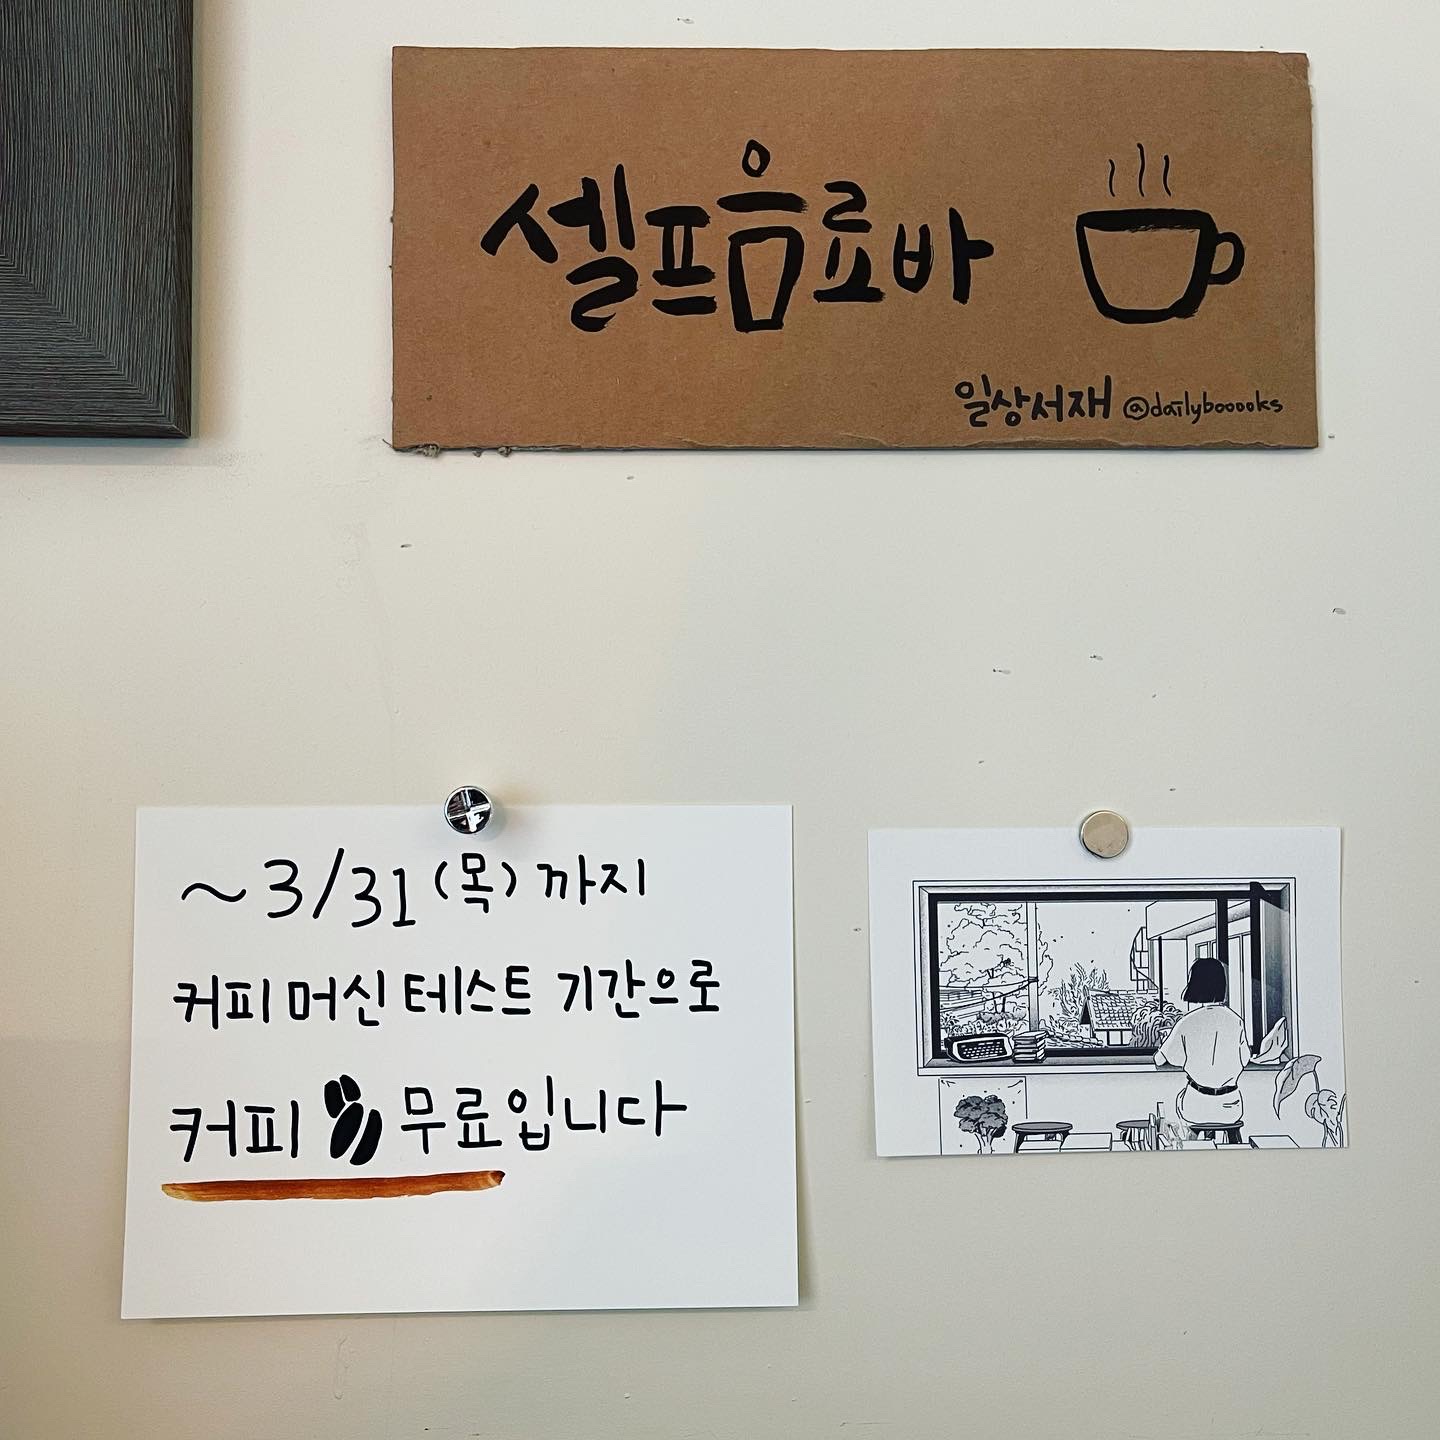 셀프음료바
일상서재 @dailybooooks
~3/31(목)까지
커피머신테스트 기간으로
커피 무료입니다